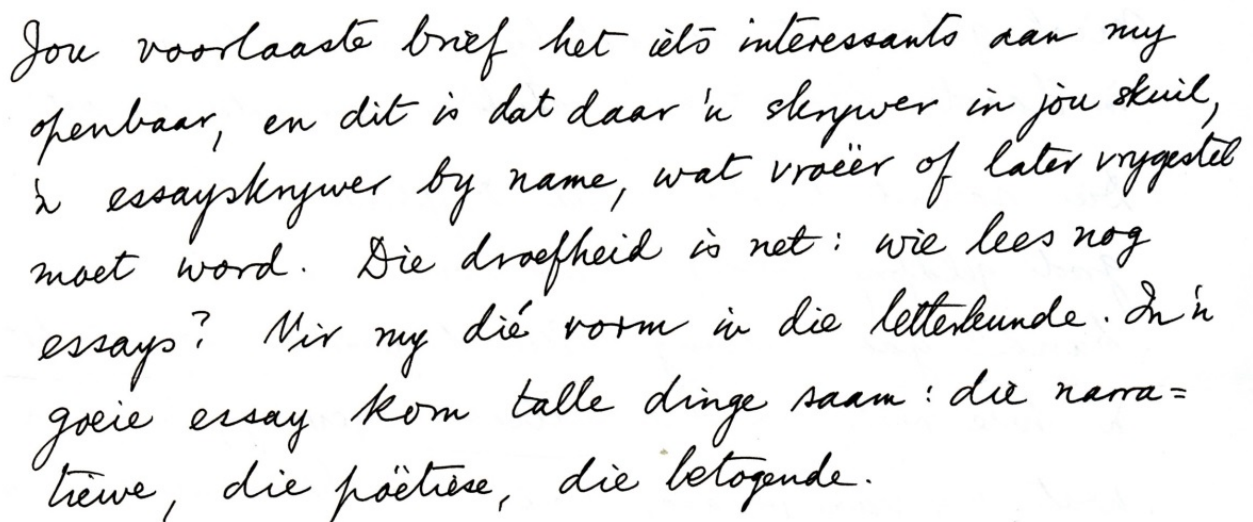 Jou voorlaaste brief het iets interessants aan my
openbaar, en dit is dat daar 'n skrywer in jou skuil,
'n essayskrywer by name, wat vroëer of later vrygestel
moet word. Die droefheid is net: wie lees nog
essays? Vir my dié vorm in die letterkunde. In 'n
goeie essay kom talle dinge saam: die narra=
tiewe, die poëtiese, die betogende.